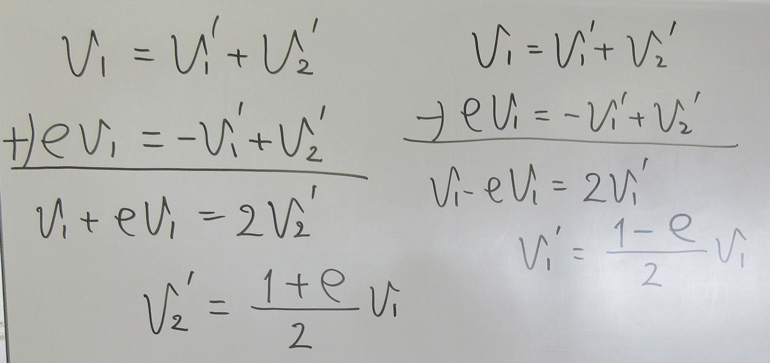 v₁ = v₁' + v₂'
+) ev₁ = -v₁' + v₂'
v₁ + ev₁ = 2v₂'
v₂' = (1 + e)/2 v₁
v₁ = v₁' + v₂'
-) ev₁ = -v₁' + v₂'
v₁ - ev₁ = 2v₁'
v₁' = (1 - e)/2 v₁